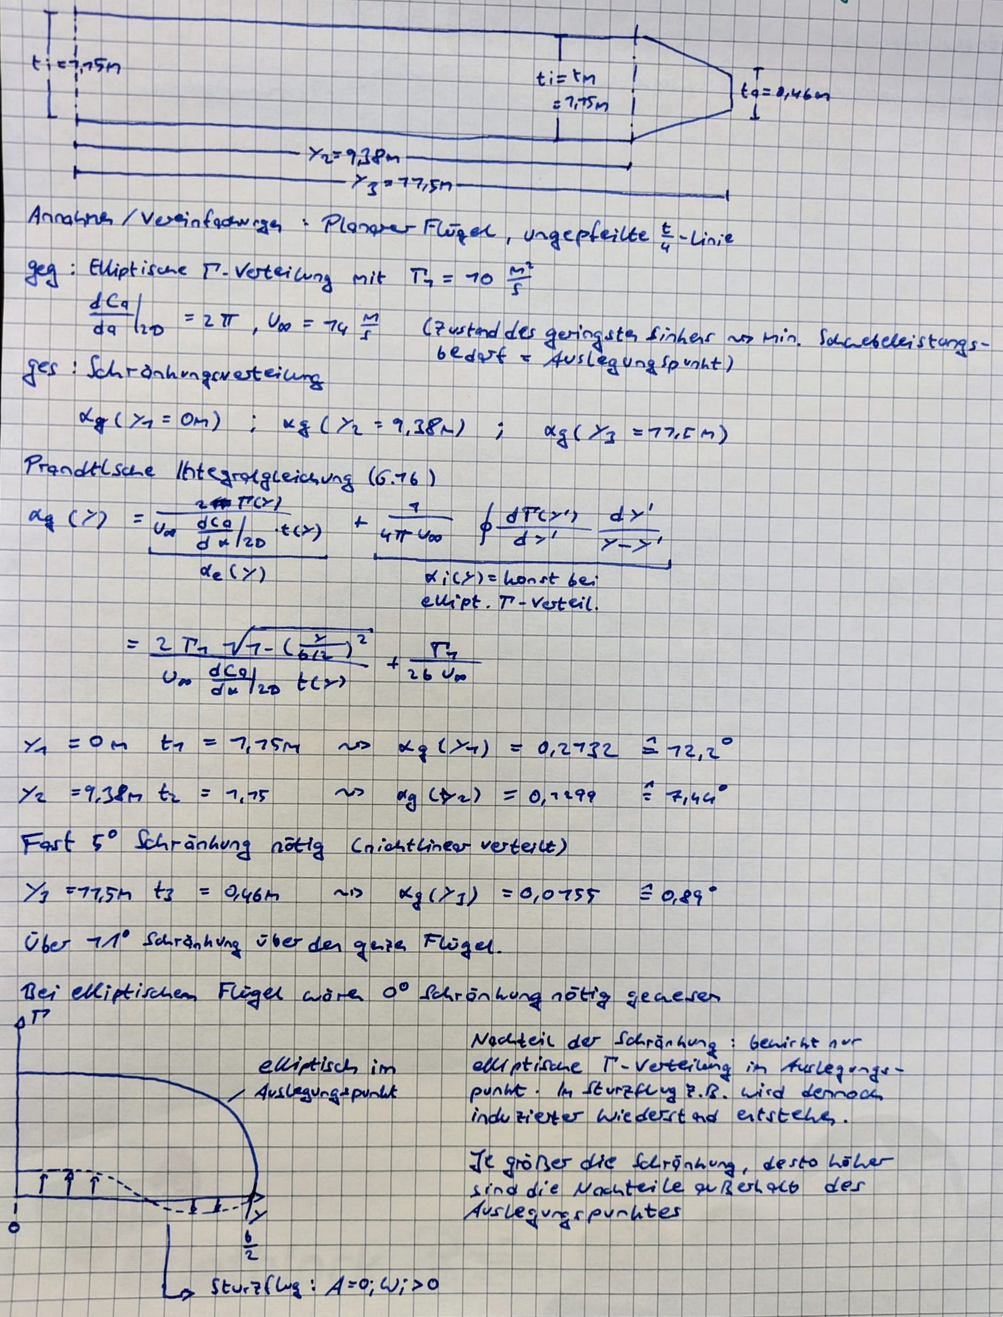 ti = 1,15m
ti = tm
= 1,15m
ta = 0,46m
y2 = 9,38m
y3 = 11,5m
Annahmen / Vereinfachungen : Planarer Flügel, ungepfeilte t/4 - Linie
geg : Elliptische Γ-Verteilung mit Γ1 = 10 m²/s
dCa/dα |2D = 2π , U∞ = 14 m/s (Zustand des geringsten Sinkens ~> min. Schwebeleistungs-
bedarf = Auslegungspunkt)
ges : Schränkungsverteilung
αg (y1 = 0m) ; αg (y2 = 9,38m) ; αg (y3 = 11,5m)
Prandtlsche Integralgleichung (6.16)
αg (y) = 2 Γ(y) / (U∞ dCa/dα |2D · t(y)) + 1/(4π U∞) ∮ dΓ(y')/dy' dy'/(y-y')
αe (y)
αi (y) = konst bei
ellipt. Γ-Verteil.
= 2 Γ1 √(1 - (y/(b/2))²) / (U∞ dCa/dα |2D t(y)) + Γ1/(2b U∞)
y1 = 0m t1 = 1,15m ~> αg (y1) = 0,2132 ≙ 12,2°
y2 = 9,38m t2 = 1,15 ~> αg (y2) = 0,1299 ≙ 7,44°
Fast 5° Schränkung nötig (nichtlinear verteilt)
y3 = 11,5m t3 = 0,46m ~> αg (y3) = 0,0155 ≙ 0,89°
Über 11° Schränkung über den ganzen Flügel.
Bei elliptischem Flügel wären 0° Schränkung nötig gewesen
Γ
elliptisch im
Auslegungspunkt
0
y
b/2
Sturzflug : A=0; Wi > 0
Nachteil der Schränkung : bewirkt nur
elliptische Γ-Verteilung im Auslegungs-
punkt. Im Sturzflug z.B. wird dennoch
induzierter Wiederstand entstehen.
Je größer die Schränkung, desto höher
sind die Nachteile außerhalb des
Auslegungspunktes